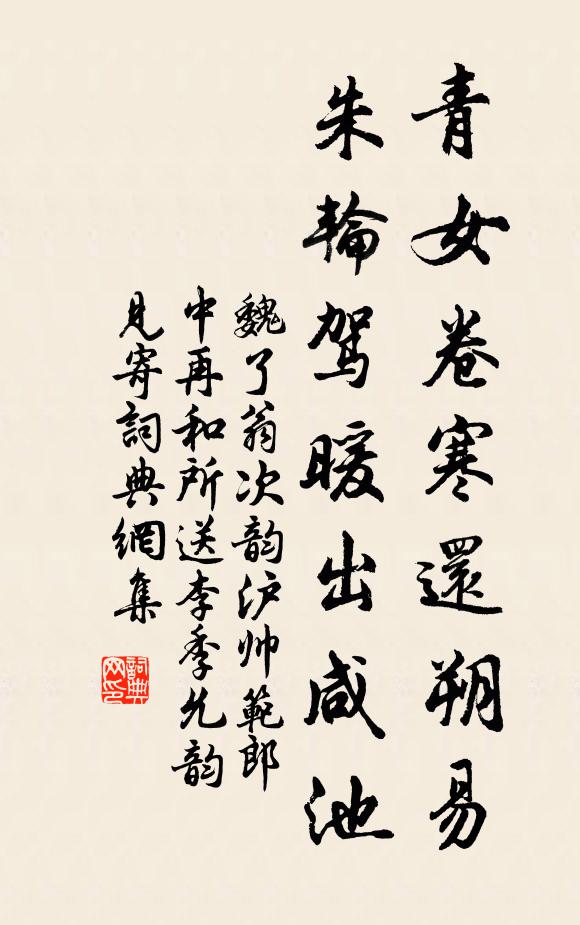 青女卷寒還朔易
朱輪駕暖出咸池
魏了翁次韵沪帅範郎
中再和所送李季允韵
見寄詞典網集
詞典网印